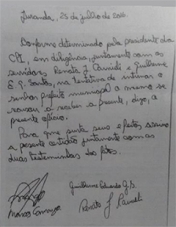 Jacarandá, 25 de julho de 2005.
Conforme determinado pela presidente da
CPI, em diligência, juntamente com os
servidores, Renata J. Camilli e Guilherme
E. G. Santos, na tentativa de intimar o
senhor prefeito municipal o mesmo se
recusou a receber a presente, digo, o
presente ofício.
Para que surta seus efeitos assino
a presente certidão juntamente com as
duas testemunhas do fato.
Guilherme Eduardo G. S.
Marcos Camargo
Renata J. Camilli